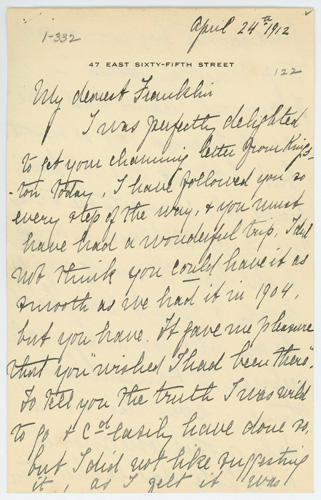 1-332
April 24th 1912
47 EAST SIXTY-FIFTH STREET
122
My dearest Franklin
I was perfectly delighted
to get your charming letter from Kings-
-ton today. I have followed you so
every step of the way, & you must
have had a wonderful trip, I did
not think you could have it as
smooth as we had it in 1904,
but you have. It gave me pleasure
that you "wished I had been there".
To tell you the truth I was wild
to go, & cd easily have done so,
but I did not like suggesting
it, as I felt it was